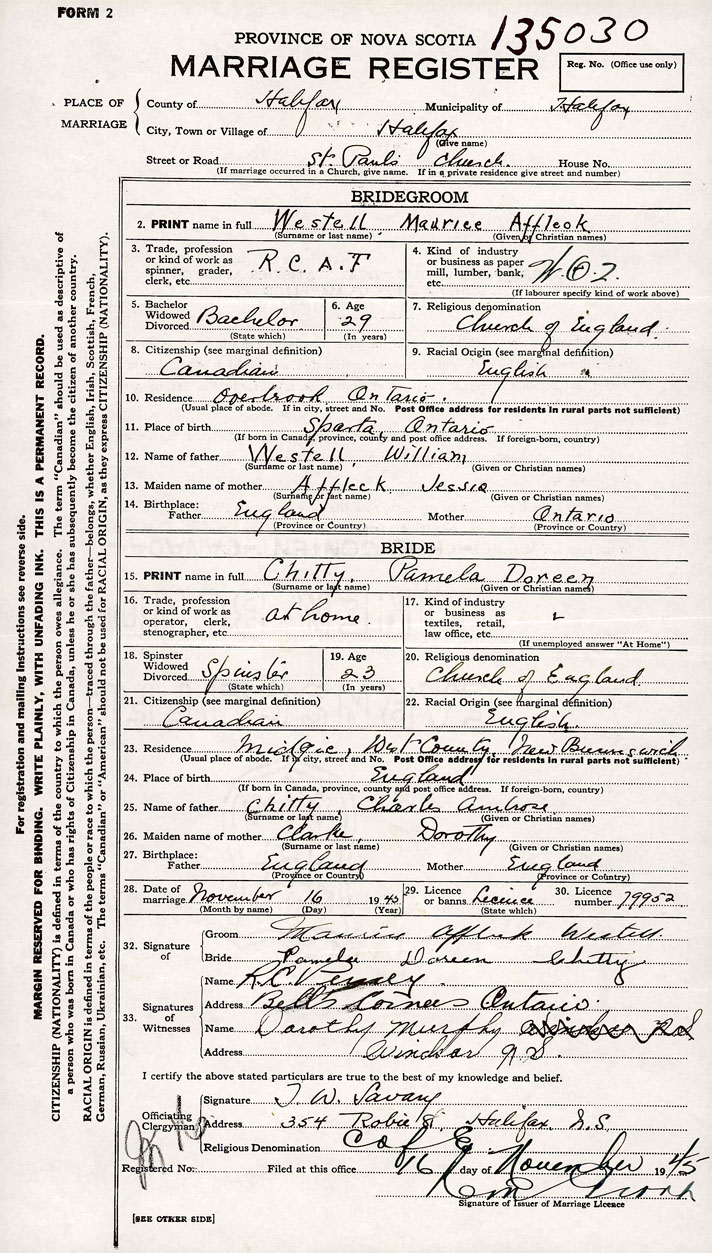 FORM 2
135030
PROVINCE OF NOVA SCOTIA
MARRIAGE REGISTER
Reg. No. (Office use only)
PLACE OF MARRIAGE
County of Halifax Municipality of Halifax
City, Town or Village of Halifax
(Give name)
Street or Road St. Paul's Church. House No.
(If marriage occurred in a Church, give name. If in a private residence give street and number)
BRIDEGROOM
2. PRINT name in full Westell Maurice Affleck
(Surname or last name) (Given or Christian names)
3. Trade, profession or kind of work as spinner, grader, clerk, etc. R.C.A.F
4. Kind of industry or business as paper mill, lumber, bank, etc.
(If labourer specify kind of work above)
5. Bachelor Widowed Divorced Bachelor
(State which)
6. Age 29
(In years)
7. Religious denomination
Church of England.
8. Citizenship (see marginal definition)
Canadian
9. Racial Origin (see marginal definition)
English
10. Residence Overbrook Ontario.
(Usual place of abode. If in city, street and No. Post Office address for residents in rural parts not sufficient)
11. Place of birth Sparta, Ontario
(If born in Canada, province, county and post office address. If foreign-born, country)
12. Name of father Westell, William
(Surname or last name) (Given or Christian names)
13. Maiden name of mother Affleck Jessie
(Surname or last name) (Given or Christian names)
14. Birthplace: Father England Mother Ontario
(Province or Country) (Province or Country)
BRIDE
15. PRINT name in full Chitty, Pamela Doreen
(Surname or last name) (Given or Christian names)
16. Trade, profession or kind of work as operator, clerk, stenographer, etc. at home.
17. Kind of industry or business as textiles, retail, law office, etc.
(If unemployed answer "At Home")
18. Spinster Widowed Divorced Spinster
(State which)
19. Age 23
(In years)
20. Religious denomination
Church of England
21. Citizenship (see marginal definition)
Canadian
22. Racial Origin (see marginal definition)
English.
23. Residence Midgic, West County, New Brunswick
(Usual place of abode. If in city, street and No. Post Office address for residents in rural parts not sufficient)
24. Place of birth England
(If born in Canada, province, county and post office address. If foreign-born, country)
25. Name of father Chitty, Charles Ambrose
(Surname or last name) (Given or Christian names)
26. Maiden name of mother Clarke, Dorothy
(Surname or last name) (Given or Christian names)
27. Birthplace: Father England Mother England
(Province or Country) (Province or Country)
28. Date of marriage November 16 1945
(Month by name) (Day) (Year)
29. Licence or banns Licence
(State which)
30. Licence number 79952
32. Signature of
Groom Maurice Affleck Westell.
Bride Pamela Doreen Chitty
33. Signatures of Witnesses
Name R.C.
Address Bell's Corners Ontario.
Name Dorothy Murphy
Address Windsor N.S.
I certify the above stated particulars are true to the best of my knowledge and belief.
Officiating Clergyman
Signature T. W. Savary
Address 354 Robie St. Halifax, N.S.
Religious Denomination C of E.
Registered No. Filed at this office 16 day of November 1945
Signature of Issuer of Marriage Licence
[SEE OTHER SIDE]
For registration and mailing instructions see reverse side.
MARGIN RESERVED FOR BINDING. WRITE PLAINLY, WITH UNFADING INK. THIS IS A PERMANENT RECORD.
CITIZENSHIP (NATIONALITY) is defined in terms of the country to which the person owes allegiance. The term "Canadian" should be used as descriptive of
a person who was born in Canada or who has rights of Citizenship in Canada, unless he or she has subsequently become the citizen of another country.
RACIAL ORIGIN is defined in terms of the people or race to which the person—traced through the father—belongs, whether English, Irish, Scottish, French,
German, Russian, Ukrainian, etc. The terms "Canadian" or "American" should not be used for RACIAL ORIGIN, as they express CITIZENSHIP (NATIONALITY).